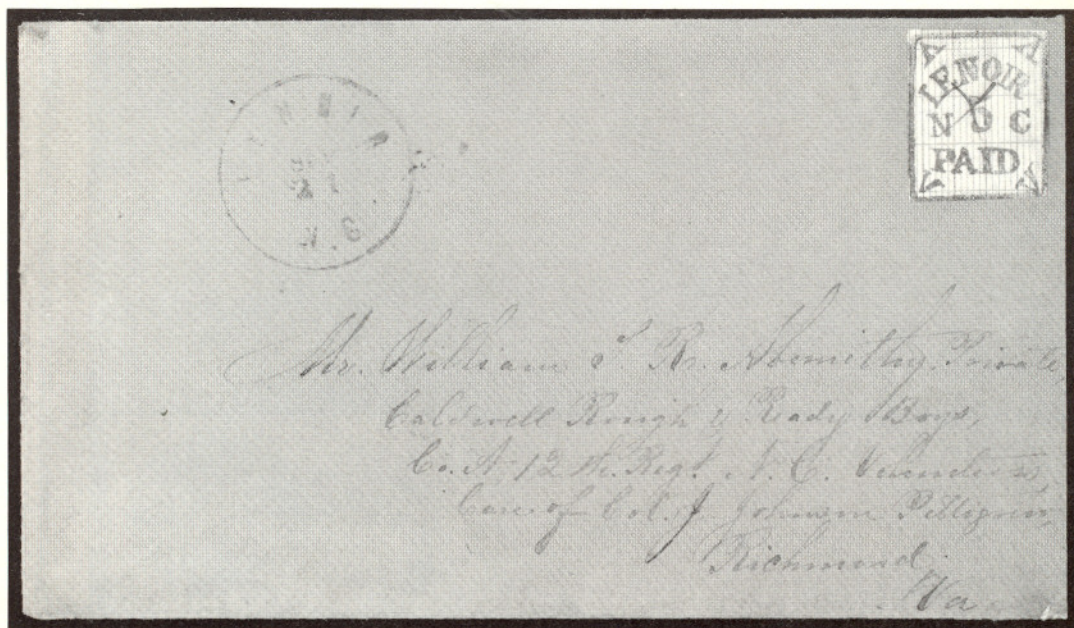 LENOIR
N 5 C
PAID
LENOIR
N.C.
Mr. William T R. Abernithy Private,
Caldwell Rough & Ready Boys,
Co. A 12 th. Regt. N. C. Volunteers,
Care of Col. J. Johnson Pettigrew,
Richmond,
Va